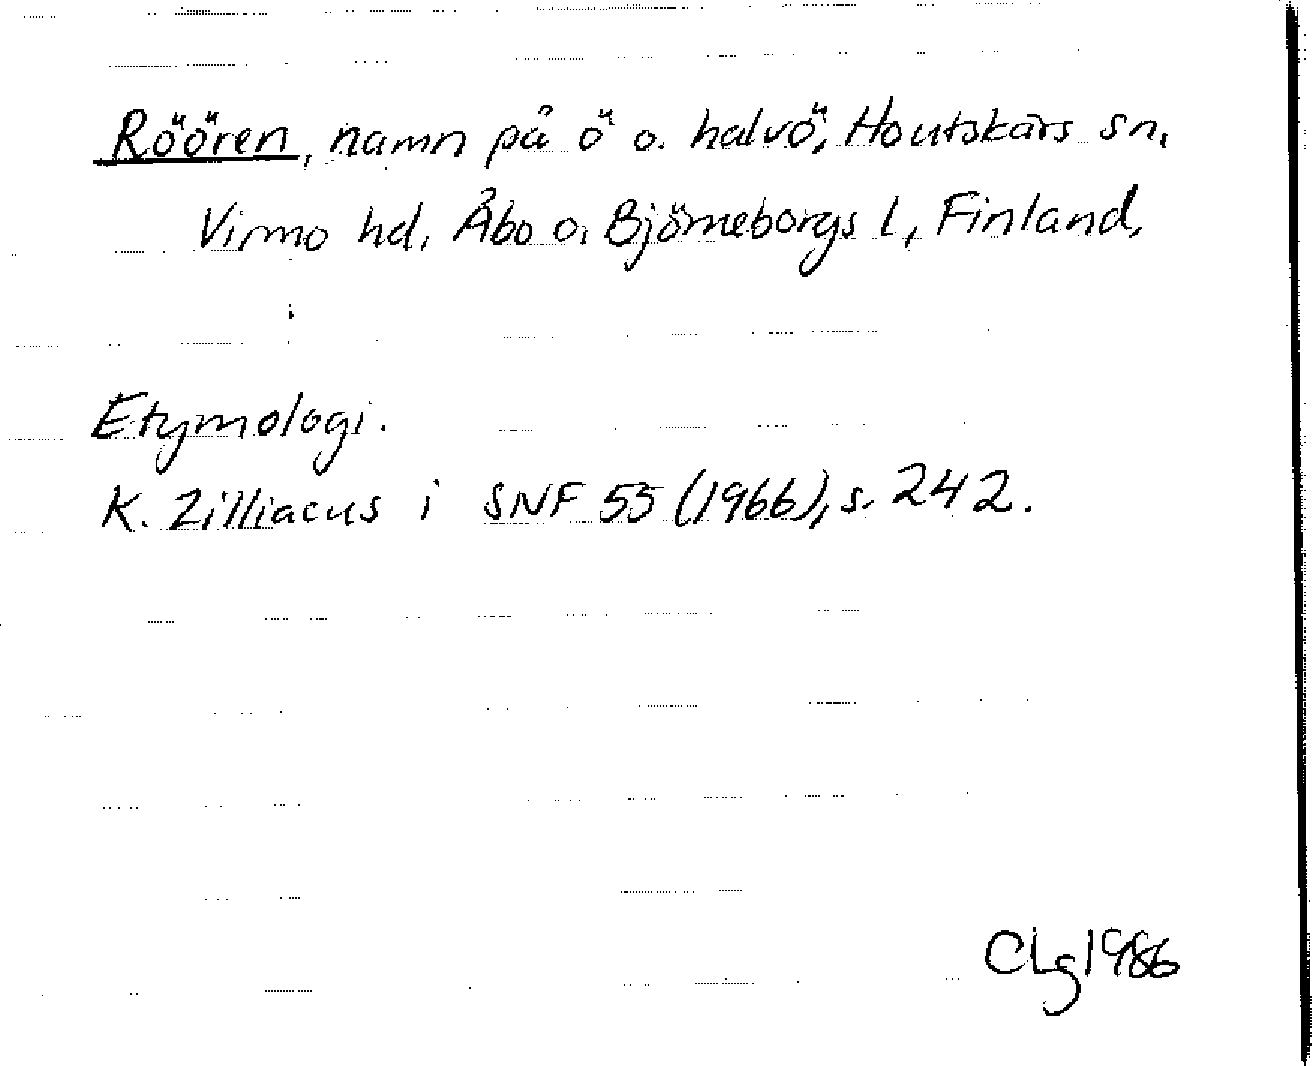 Röören, namn på ö o. halvö, Houtskärs sn,
Virmo hd, Åbo o. Björneborgs l, Finland,
Etymologi.
K. Zilliacus i SNF 55 (1966), s. 242.
CLg 1986